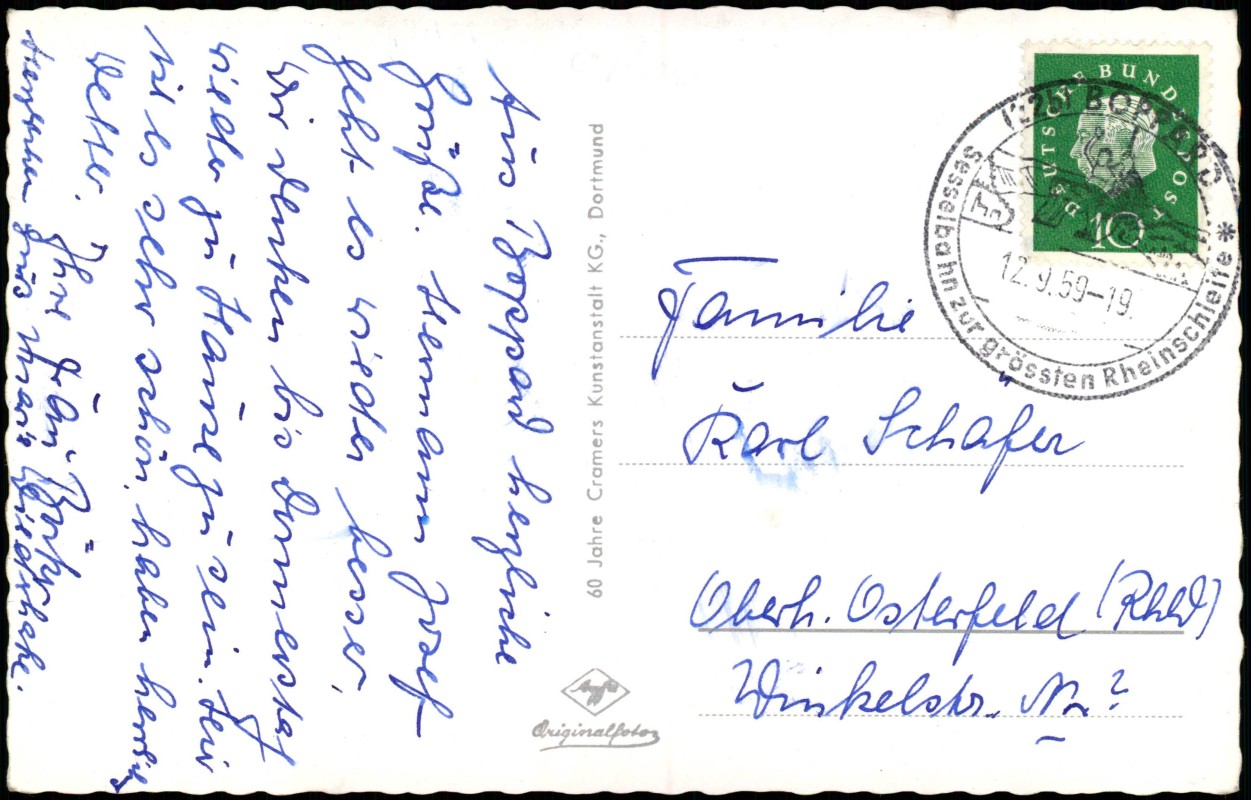 Aus Boppard herzliche
Grüße. Hermann Josef
geht es wieder besser,
wir denken bis Donnerstag
wieder zu Hause zu sein. Hier
ist es sehr schön, haben herrlich
Wetter. Ihre Fam.
Maria
60 Jahre Cramers Kunstanstalt KG., Dortmund
Agfa
Originalfoto
DEUTSCHE BUNDESPOST
10
BOPPARD
12.9.59-19
Sesselbahn zur grössten Rheinschleife *
Familie
Karl Schäfer
Oberh. Osterfeld (Rhld)
Winkelstr. Nr?